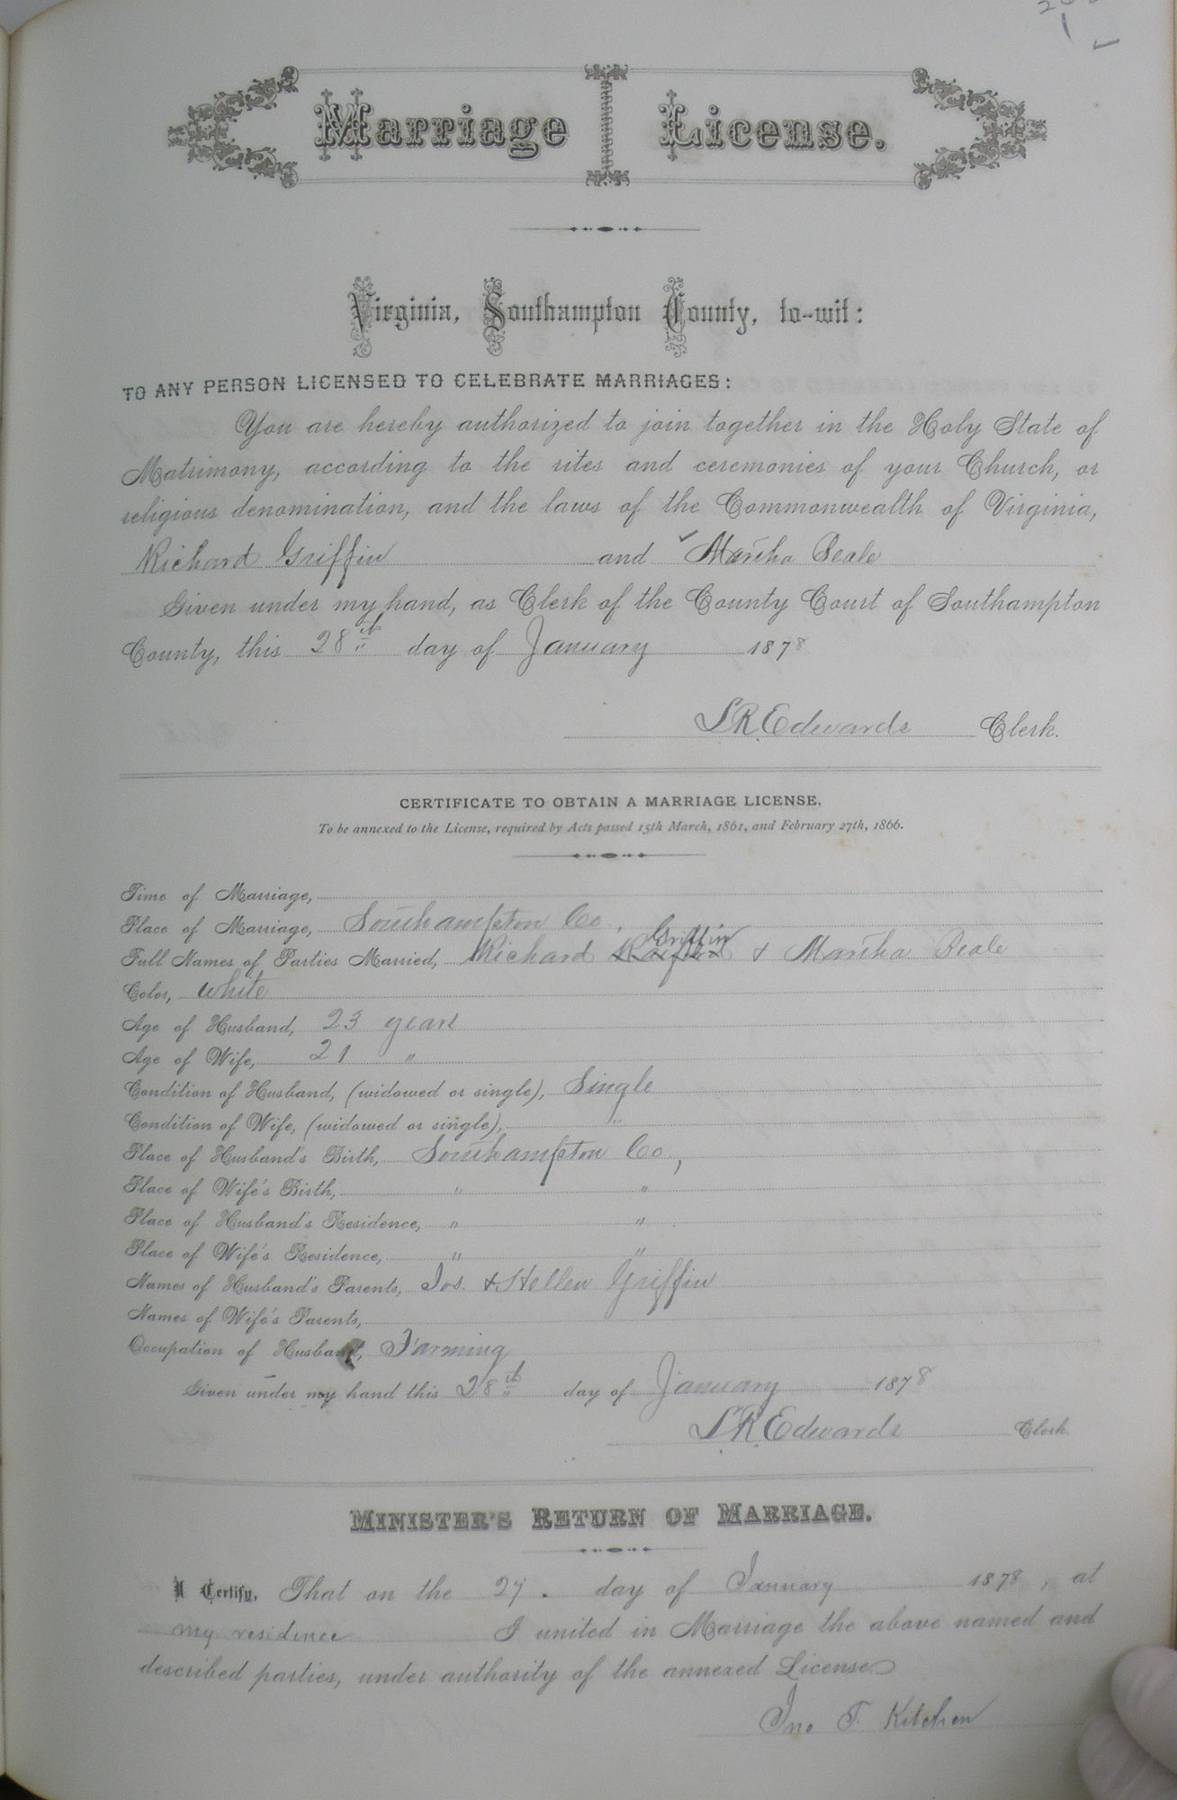 Marriage License.
Virginia, Southampton County, to-wit:
TO ANY PERSON LICENSED TO CELEBRATE MARRIAGES:
You are hereby authorized to join together in the Holy State of
Matrimony, according to the rites and ceremonies of your Church, or
religious denomination, and the laws of the Commonwealth of Virginia,
Richard Griffin and Martha Beale
Given under my hand, as Clerk of the County Court of Southampton
County, this 28th day of January 1878
L R Edwards Clerk.
CERTIFICATE TO OBTAIN A MARRIAGE LICENSE.
To be annexed to the License, required by Acts passed 15th March, 1861, and February 27th, 1866.
Time of Marriage,
Place of Marriage, Southampton Co,
Full Names of Parties Married, Richard Griffin & Martha Beale
Color, white
Age of Husband, 23 years
Age of Wife, 21 "
Condition of Husband, (widowed or single), Single
Condition of Wife, (widowed or single), "
Place of Husband's Birth, Southampton Co,
Place of Wife's Birth, " "
Place of Husband's Residence, " "
Place of Wife's Residence, " "
Names of Husband's Parents, Jos. & Hellen Griffin
Names of Wife's Parents,
Occupation of Husband, Farming
Given under my hand this 28th day of January 1878
L R Edwards Clerk.
MINISTER'S RETURN OF MARRIAGE.
I Certify, That on the 27. day of January 1878, at
my residence I united in Marriage the above named and
described parties, under authority of the annexed License
Jno T. Kitchen